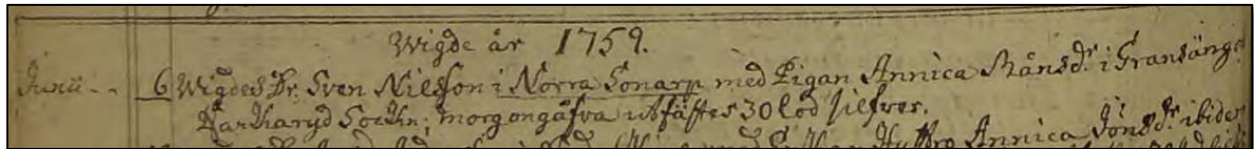 Wigde år 1759.
Junii - - 6 Wigdes Dr. Sven Nilsson i Norra Sonarp med Pigan Annica Månsdr. i Gransänge
Barkaryd Sockn; morgongåfva utfästes 30 lod silfver.
Annica Jönsdr. ibidem